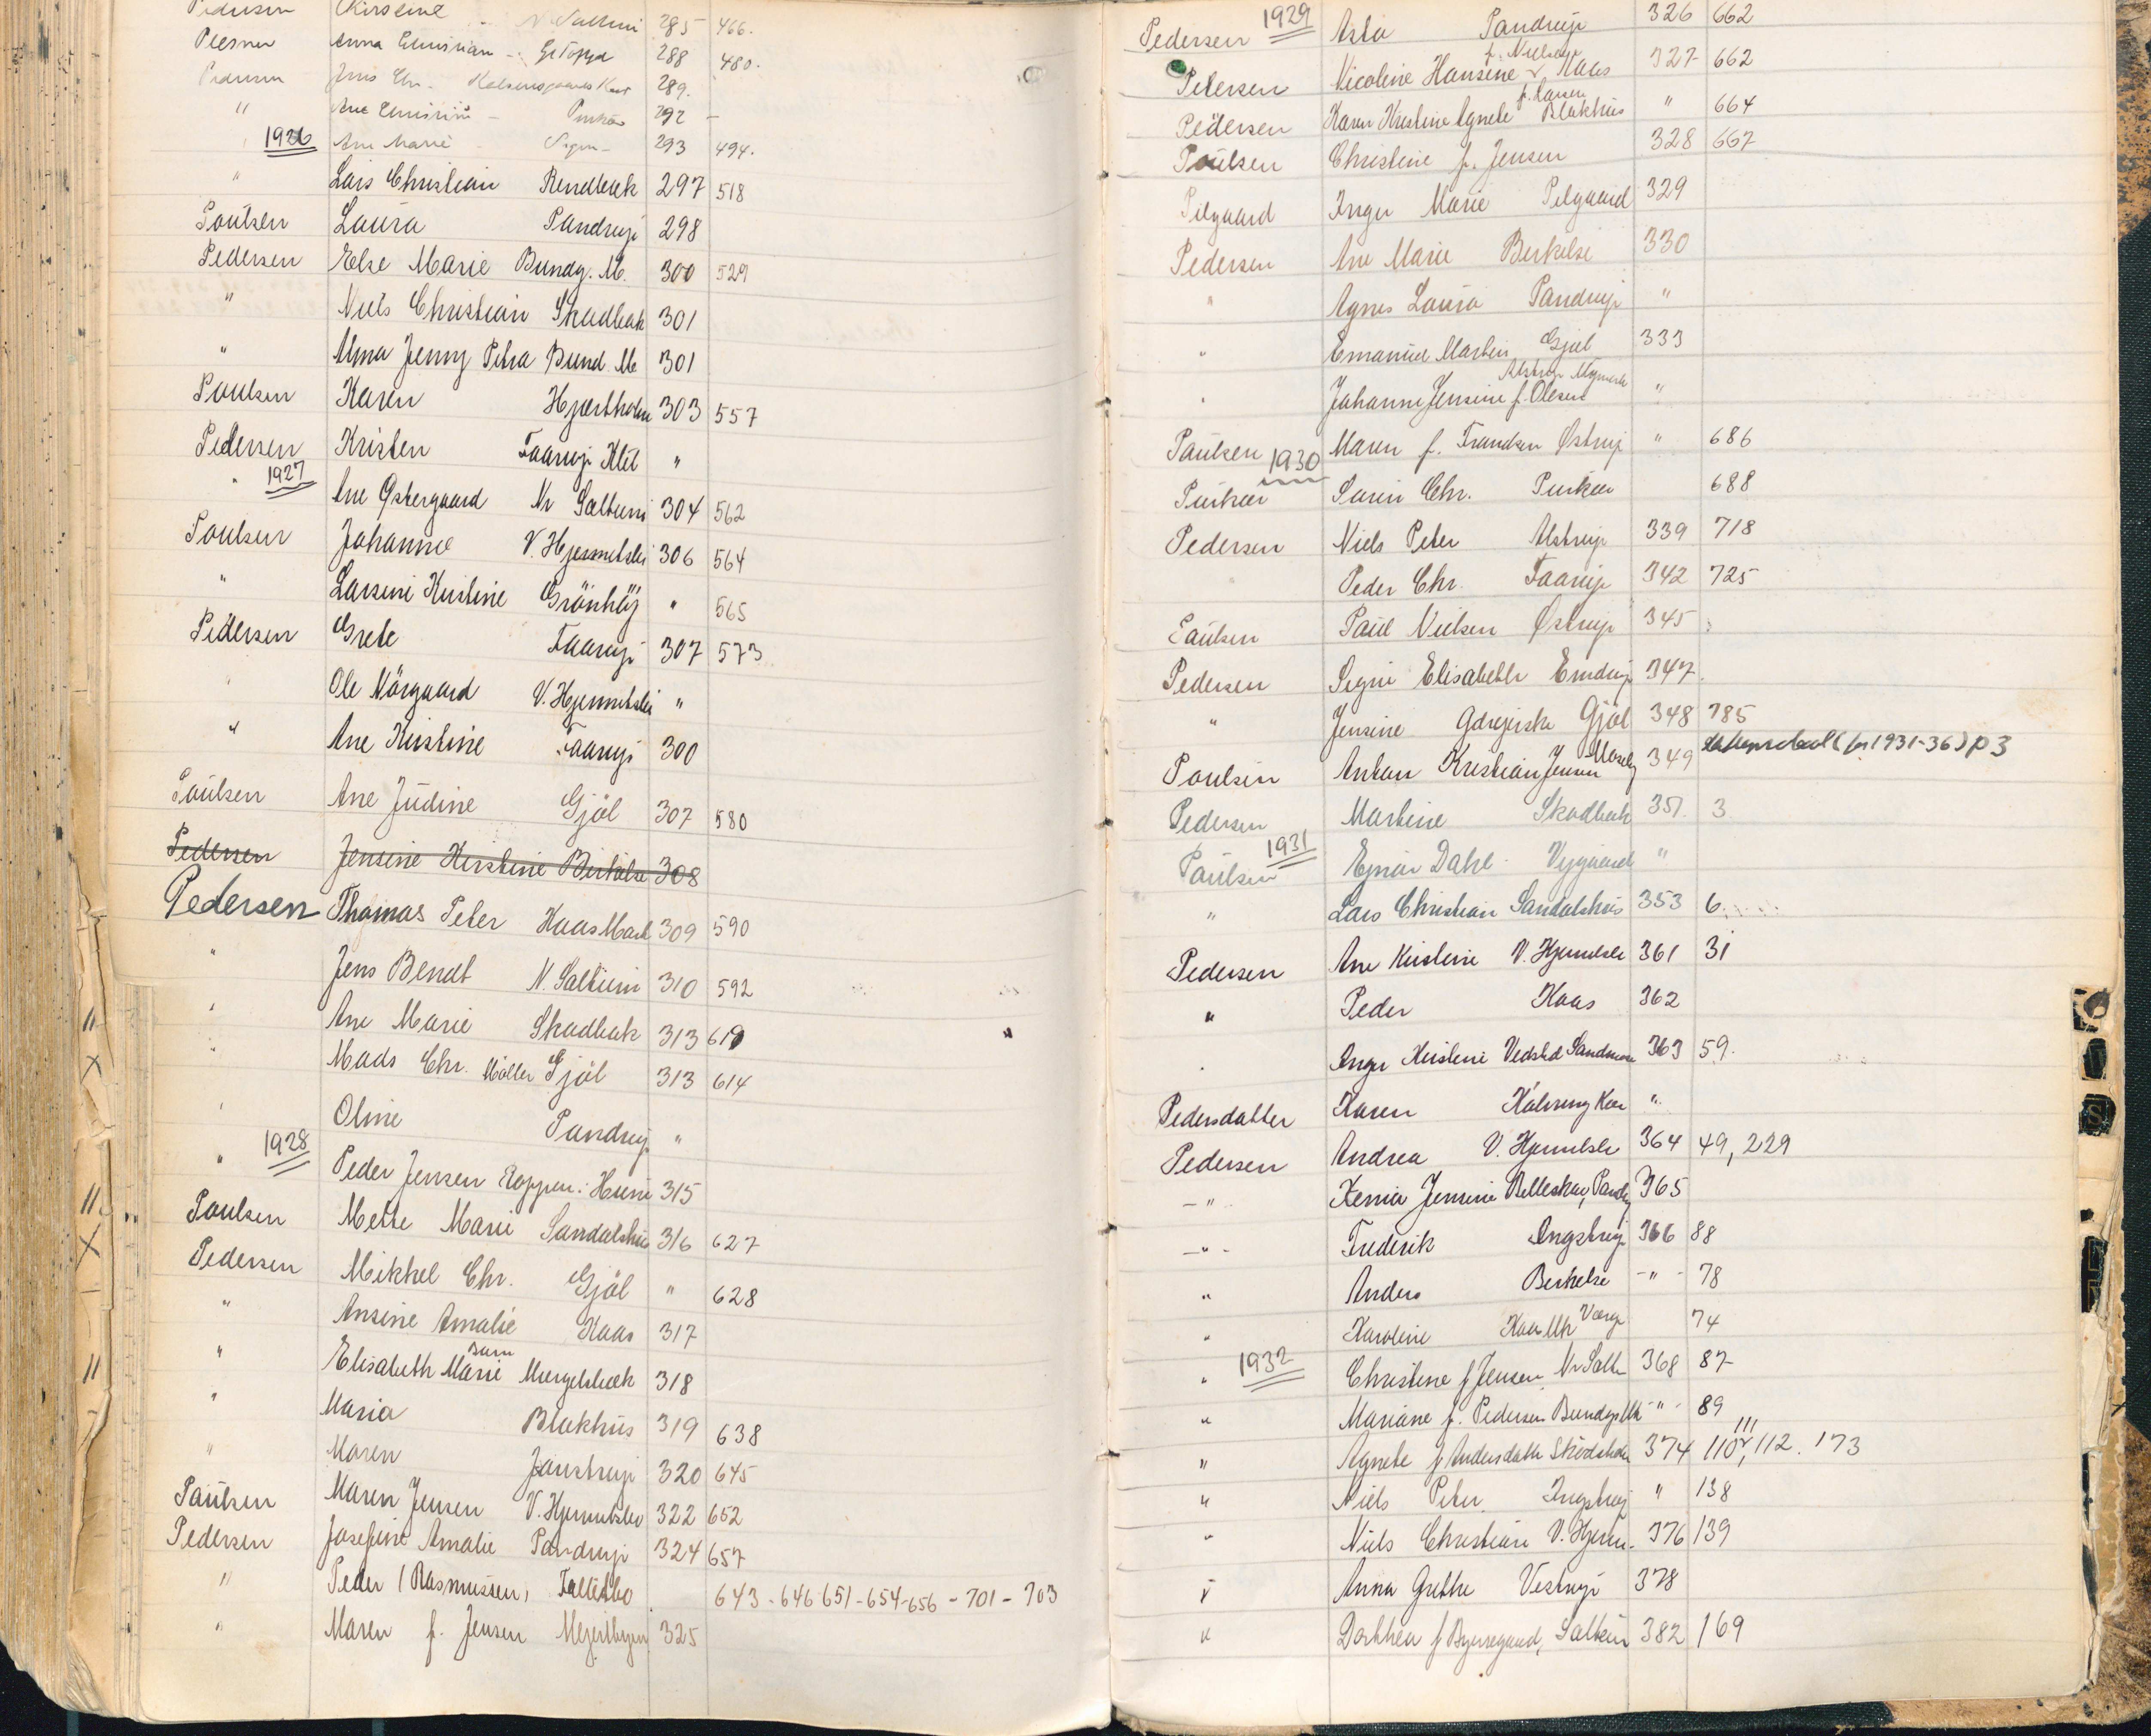 Pedersen Kirstine N Saltum 285 466.
Plesner Anna Christian 288 480.
Pedersen Jens Chr. 289.
" Ane 292 —
1926 Ane Marie 293 494.
" Lars Christian Rendbæk 297 518
Poulsen Laura Pandrup 298
Pedersen Else Marie Bundg. M. 300 529
" Niels Christian Skadbæk 301
" Alma Jenny Petra Bund. M 301
Poulsen Karen Hjortholm 303 557
Pedersen Kristen Faarup Klit "
" 1927 Ane Østergaard Nr Saltum 304 562
Poulsen Johanne V. Hjermitslev 306 564
" Larsine Kirstine Grönhöj " 565
Pedersen Grete Faarup 307 573
" Ole Nörgaard V. Hjermitslev "
" Ane Kirstine Faarup 300
Paulsen Ane Judine Gjöl 307 580
Pedersen Jensine Kirstine Birkelse 308
Pedersen Thomas Peter Kaas Mark 309 590
" Jens Bendt N. Saltum 310 592
" Ane Marie Skadbæk 313 619
" Mads Chr. Möller Gjöl 313 614
" Oline Pandrup "
" 1928 Peder Jensen Koppen: Hune 315
Poulsen Mette Marie Sandalshus 316 627
Pedersen Mikkel Chr. Gjöl " 628
" Ansine Amalie Kaas 317
" Elisabeth Marie Barn Mergelsbæk 318
" Maria Blokhus 319 638
" Maren Janstrup 320 645
Paulsen Maren Jensen V. Hjermitslev 322 652
Pedersen Josefine Amalie Pandrup 324 657
" Peder (Rasmussen) Faltebo 643-646 651-654-656-701-703
" Maren f. Jensen Mejeribyen 325
Pedersen 1929 Asta Pandrup 326 662
Petersen Nicoline Hansine f. Nielsen Kaas 327 662
Pedersen Karen Kristine Agnete f. Larsen Blokhus " 664
Poulsen Christine f. Jensen 328 667
Pilgaard Inger Marie Pilgaard 329
Pedersen Ane Marie Birkelse 330
" Agnes Laura Pandrup "
" Emanuel Martin Gjöl 333
" Johanne Jensine f. Olesen Alstrup "
Paulsen Maren f. Frandsen Østrup " 686
1930
Purkær Søren Chr. Purkær 688
Pedersen Niels Peter Alstrup 339 718
" Peder Chr. Faarup 342 725
Paulsen Paul Nielsen Østrup 345
Pedersen Signe Elisabeth 347.
" Jensine Gjöl 348 785
Poulsen Anton Kristian Jensen Moseby 349 (for 1931-36) p 3
Pedersen Martine Skadbæk 351. 3
Paulsen 1931 Ejnar Dahl Vejgaard "
" Lars Christian Sandalshus 353 6
Pedersen Ane Kirstine V. Hjermitslev 361 31
" Peder Kaas 362
" Inger Kirstine Vedsted Sandmose 363 59.
Pedersdatter Karen Kær "
Pedersen Andrea V. Hjermitslev 364 49, 229
—"— Jensine Pandrup 365
—"— Frederik Ingstrup 366 88
" Anders Birkelse —"— 78
" Karoline Kaas Mk 74
" 1932 Christine f Jensen Nr Saltum 368 87
" Mariane f. Pedersen Bundgs Mk —"— 89
" Agnete f Andersdatter 374 110, 111, 112. 173
" Niels Peter Ingstrup " 138
" Niels Christian V. Hjerm. 376 139
" Anna Grethe Vestrup 378
" Dorthea f Bjerregaard, Saltum 382 169